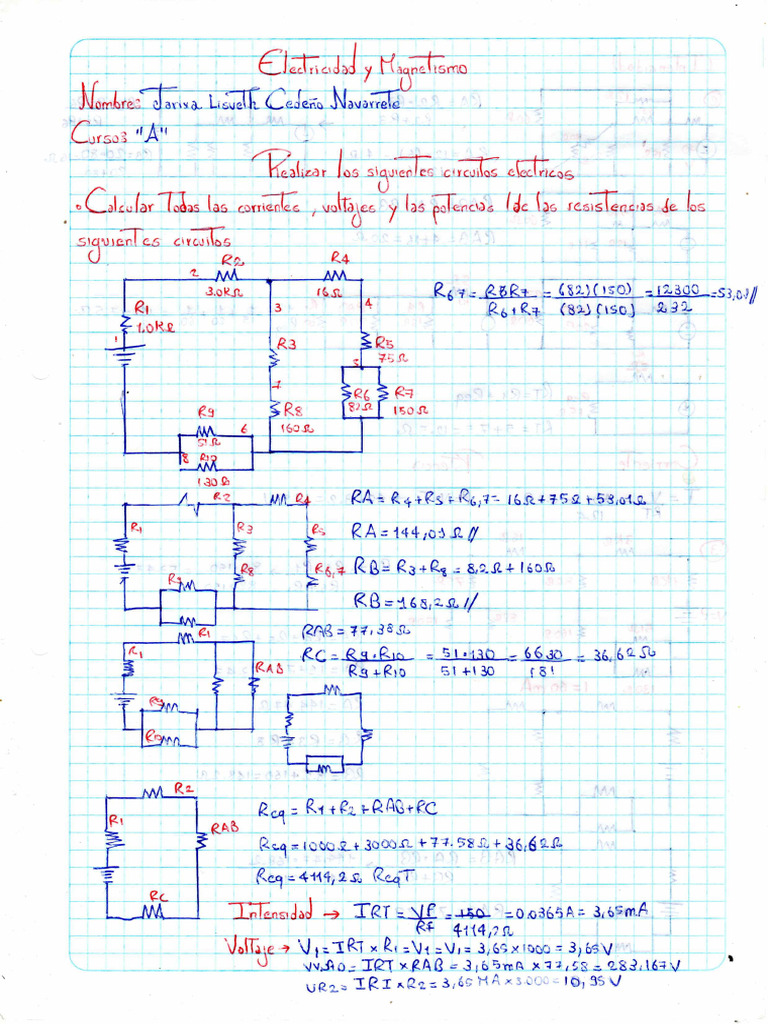 Electricidad y Magnetismo
Nombre: Jarixa Lisveth Cedeño Navarrete
Curso: "A"
Realizar los siguientes circuitos electricos
• Calcular Todas las corrientes, voltajes y las potencias de las resistencias de los
siguientes circuitos
R2 R4
2
3.0KΩ 16Ω
R67 = R6R7 / R6+R7 = (82)(150) / (82)(150) = 12300 / 232 = 53,01 //
R1
1.0KΩ
1
3 4
R3 R5
75Ω
5
7
R6 R7
82Ω 150Ω
R8
160Ω
R9
51Ω
6
8 R10
130Ω
R2 R4
RA = R4+R5+R6,7 = 16Ω+75Ω+53,01Ω
R1 R3 R5
RA = 144,01Ω //
R8 R6,7
RB = R3+R8 = 8,2Ω+160Ω
R9
RB = 168,2Ω //
R1
RAB = 77,38Ω
R1 RAB
RC = R9.R10 / R9+R10 = 51.130 / 51+130 = 6630 / 181 = 36,62Ω
R9
R10
R2
R1 RAB
RC
Req = R1+R2+RAB+RC
Req = 1000Ω+3000Ω+77.58Ω+36,62Ω
Req = 4114,2Ω ReqT
Intensidad → IRT = VF / RF = 150 / 4114,2Ω = 0.0365A = 3,65mA
Voltaje → V1 = IRT x R1 = V1 = V1 = 3,65 x 1000 = 3,65V
= IRT x RAB = 3,65mA x 77,58 = 283,167V
VR2 = IRI x R2 = 3,65 MA x 3.000 = 10,95V